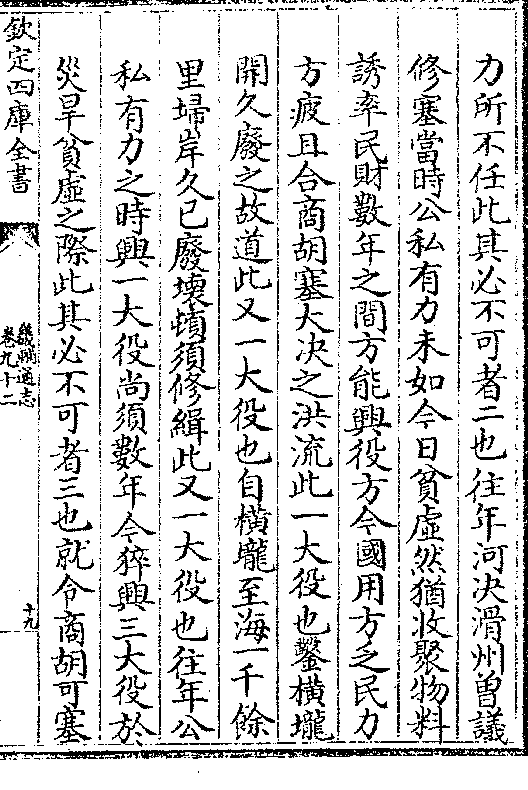 力所不任此其必不可者二也往年河决滑州曽議
修塞當時公私有力未如今日貧虛然猶收聚物料
誘率民財數年之間方能興役方今國用方乏民力
方疲且合商胡塞大决之洪流此一大役也鑿橫壠
開久廢之故道此又一大役也自橫壠至海一千餘
里埽岸久已廢壞頓須修緝此又一大役也往年公
私有力之時興一大役尚須數年今猝興三大役於
災旱貧虛之際此其必不可者三也就令商胡可塞
欽定四庫全書
畿輔通志
卷九十二
十九